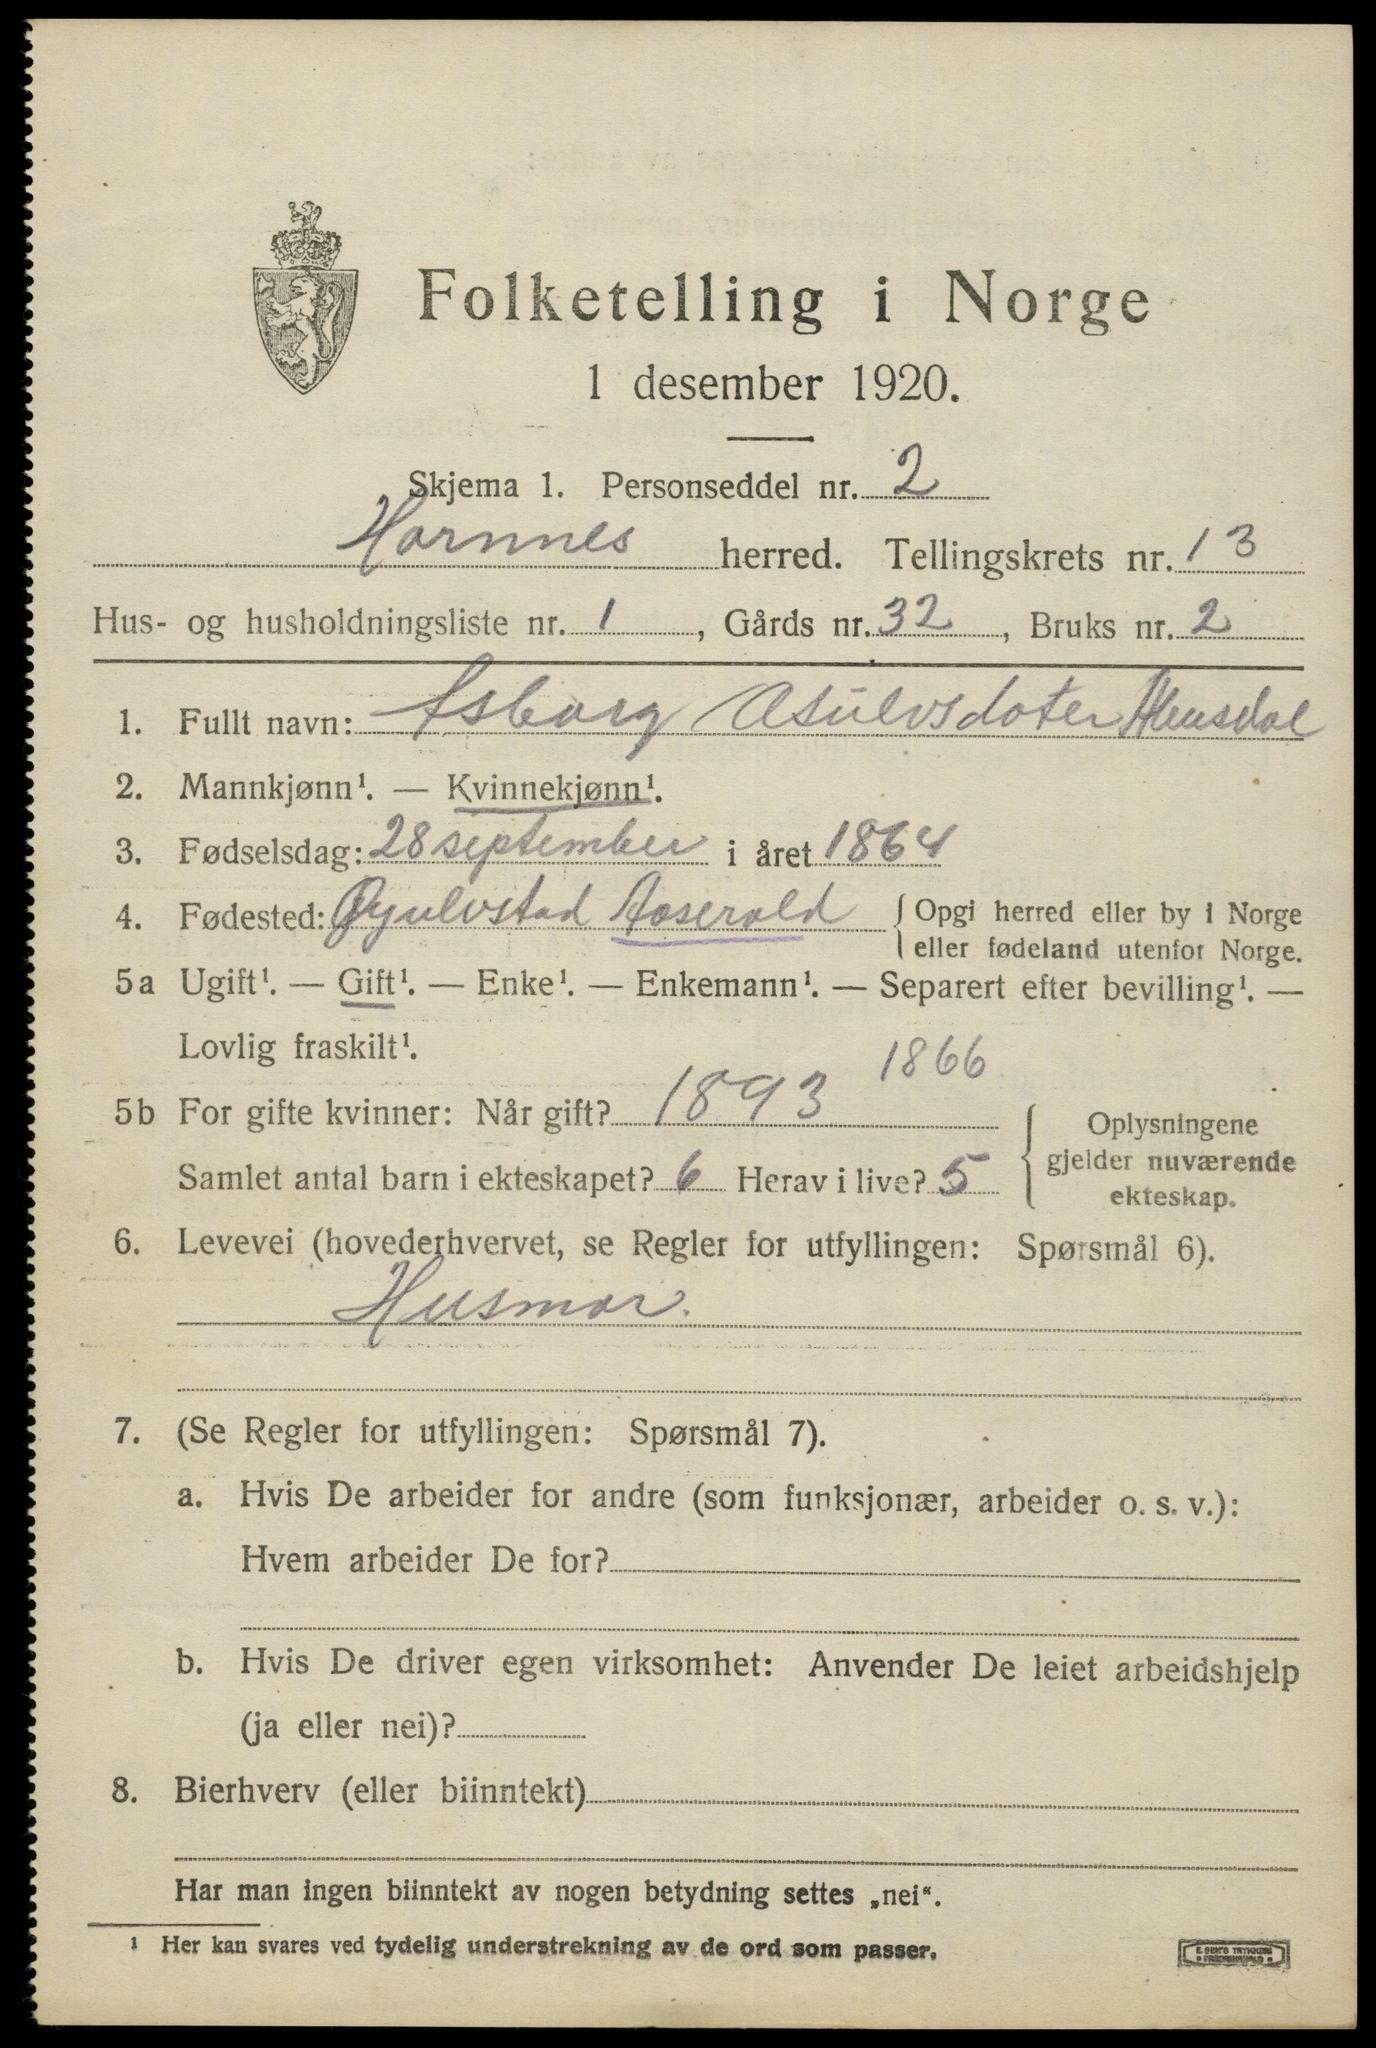 Folketelling i Norge
1 desember 1920.
Skjema 1. Personseddel nr. 2
Hornnes herred. Tellingskrets nr. 13
Hus- og husholdningsliste nr. 1, Gårds nr. 32, Bruks nr. 2
1. Fullt navn: Asborg Asulvsdoter
2. Mannkjønn¹. — Kvinnekjønn¹.
3. Fødselsdag: 28 september i året 1864
4. Fødested: Aaserald { Opgi herred eller by i Norge
eller fødeland utenfor Norge.
5a Ugift¹. — Gift¹. — Enke¹. — Enkemann¹. — Separert efter bevilling¹. —
Lovlig fraskilt¹.
1866
5b For gifte kvinner: Når gift? 1893
Samlet antal barn i ekteskapet? 6 Herav i live? 5
{ Oplysningene
gjelder nuværende
ekteskap.
6. Levevei (hovederhvervet, se Regler for utfyllingen: Spørsmål 6).
Husmor.
7. (Se Regler for utfyllingen: Spørsmål 7).
a. Hvis De arbeider for andre (som funksjonær, arbeider o. s. v.):
Hvem arbeider De for?
b. Hvis De driver egen virksomhet: Anvender De leiet arbeidshjelp
(ja eller nei)?
8. Bierhverv (eller biinntekt)
Har man ingen biinntekt av nogen betydning settes „nei“.
¹ Her kan svares ved tydelig understrekning av de ord som passer.